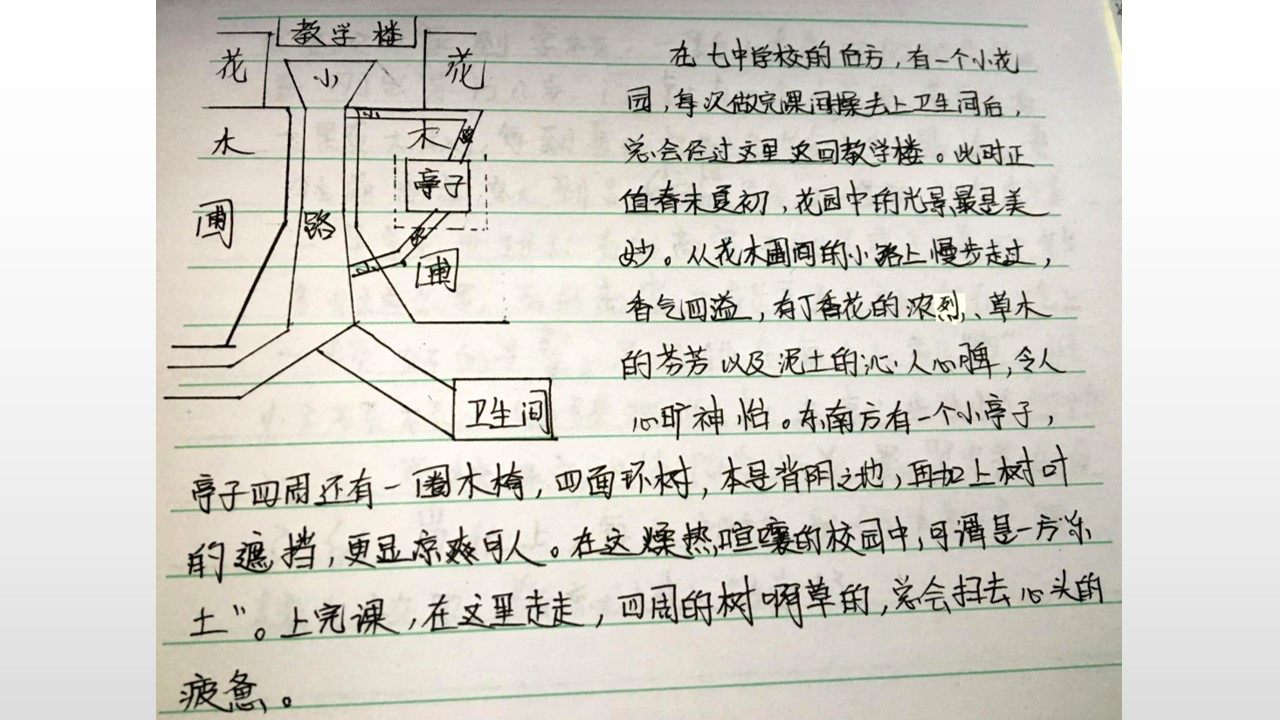 教学楼
花
小
花
木
木
亭子
圃
路
圃
卫生间
在七中学校的后方，有一个小花
园，每次做完课间操去上卫生间后，
总会经过这里返回教学楼。此时正
值春末夏初，花园中的光景最是美
妙。从花木圃间的小路上慢步走过，
香气四溢，有丁香花的浓烈、草木
的芬芳以及泥土的沁人心脾，令人
心旷神怡。东南方有一个小亭子，
亭子四周还有一圈木椅，四面环树，本是背阴之地，再加上树叶
的遮挡，更显凉爽可人。在这燥热喧嚷的校园中，可谓是一方“乐
土”。上完课，在这里走走，四周的树啊草的，总会扫去心头的
疲惫。